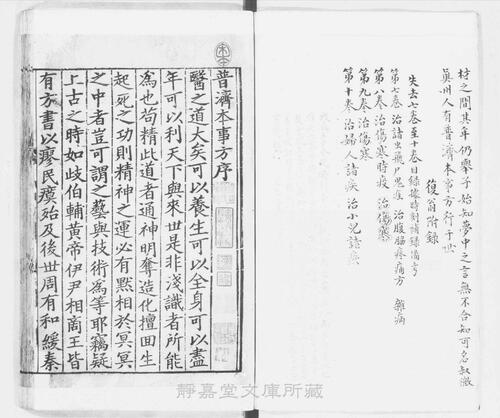 材之間其年仍舉子始知夢中之言無不合知可名叔微
真州人有普濟本事方行于世
復翁附錄
失去七卷至十卷目錄據時刻補錄備考
第七卷 治諸虫飛尸鬼疰 治腹脇疼痛方 雜病
第八卷 治傷寒時疫 治傷寒
第九卷 治傷寒
第十卷 治婦人諸疾 治小兒諸疾
普濟本事方序
醫之道大矣可以養生可以全身可以盡
年可以利天下與來世是非淺識者所能
為也苟精此道者通神明奪造化擅回生
起死之功則精神之運必有默相於冥冥
之中者豈可謂之藝與技術為等耶竊疑
上古之時如歧伯輔黃帝伊尹相商王皆
有方書以瘳民瘼殆及後世周有和緩秦
靜嘉堂文庫所藏